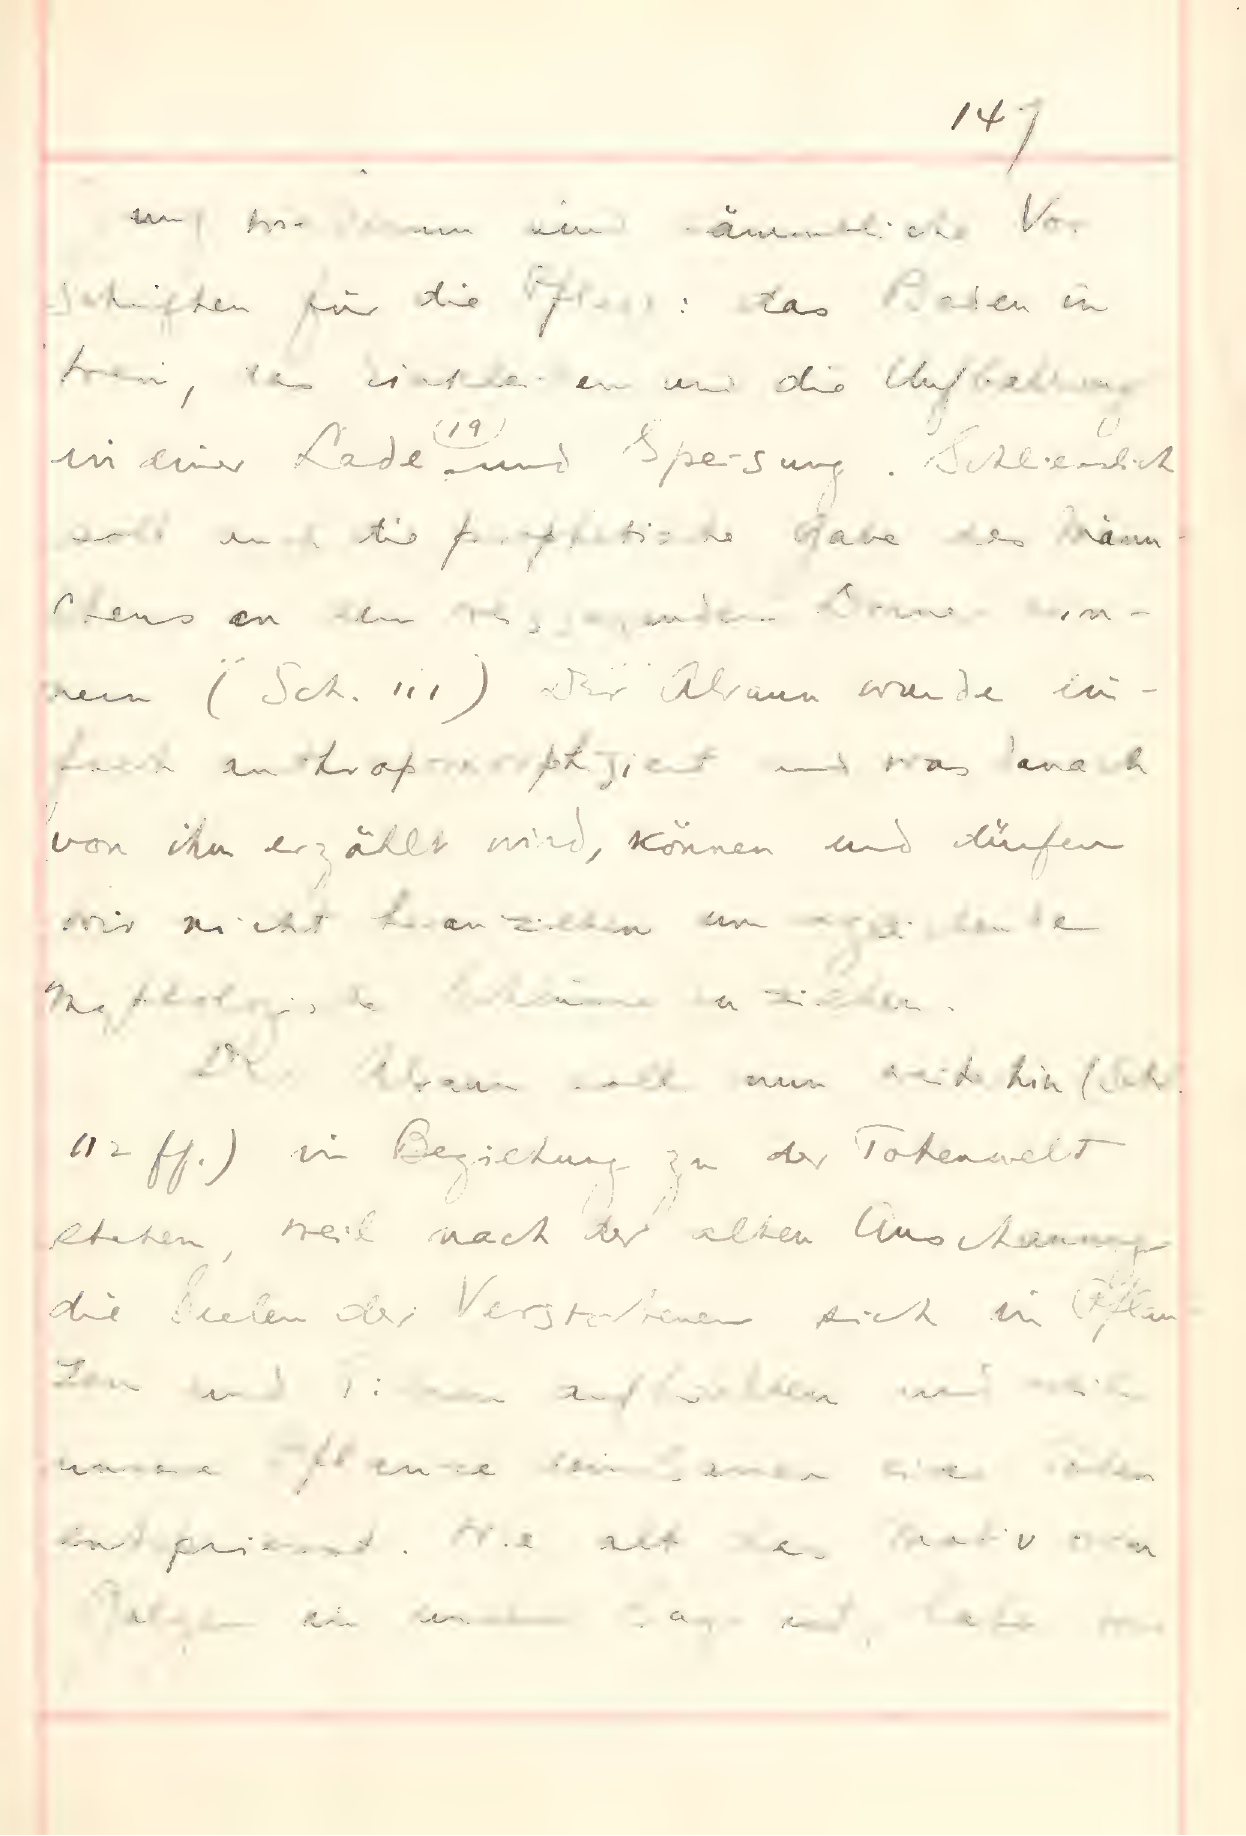 147
und sind sämmtliche Vor
schriften für die Pflege: das Baden in
Wein, das Einkleiden und die Aufbettung
in einer Lade (19) und Speisung. Schliesslich
soll auch die prophetische Gabe des Männ-
chens an den erin-
nern (Sch. 111) Der Alraun wurde ein-
fach anthropomorphiziert und was danach
von ihm erzählt wird, können und dürfen
wir nicht heranziehen um
Mythologische Schlüsse zu ziehen.
Der Alraun soll nun weiterhin (Sch.
112 ff.) in Beziehung zu der Totenwelt
stehen, weil nach der alten Anschauung
die Seelen der Verstorbenen sich in Pflan-
zen und Tieren aufhielten und weil
unsere Pflanze eines Toten
entspriesst. Wie alt das Motiv vom
Galgen in unserer Sage ist, habe